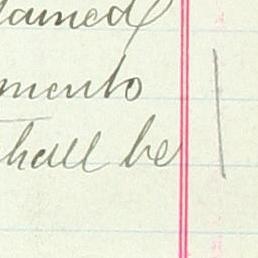 tained
ments
shall be